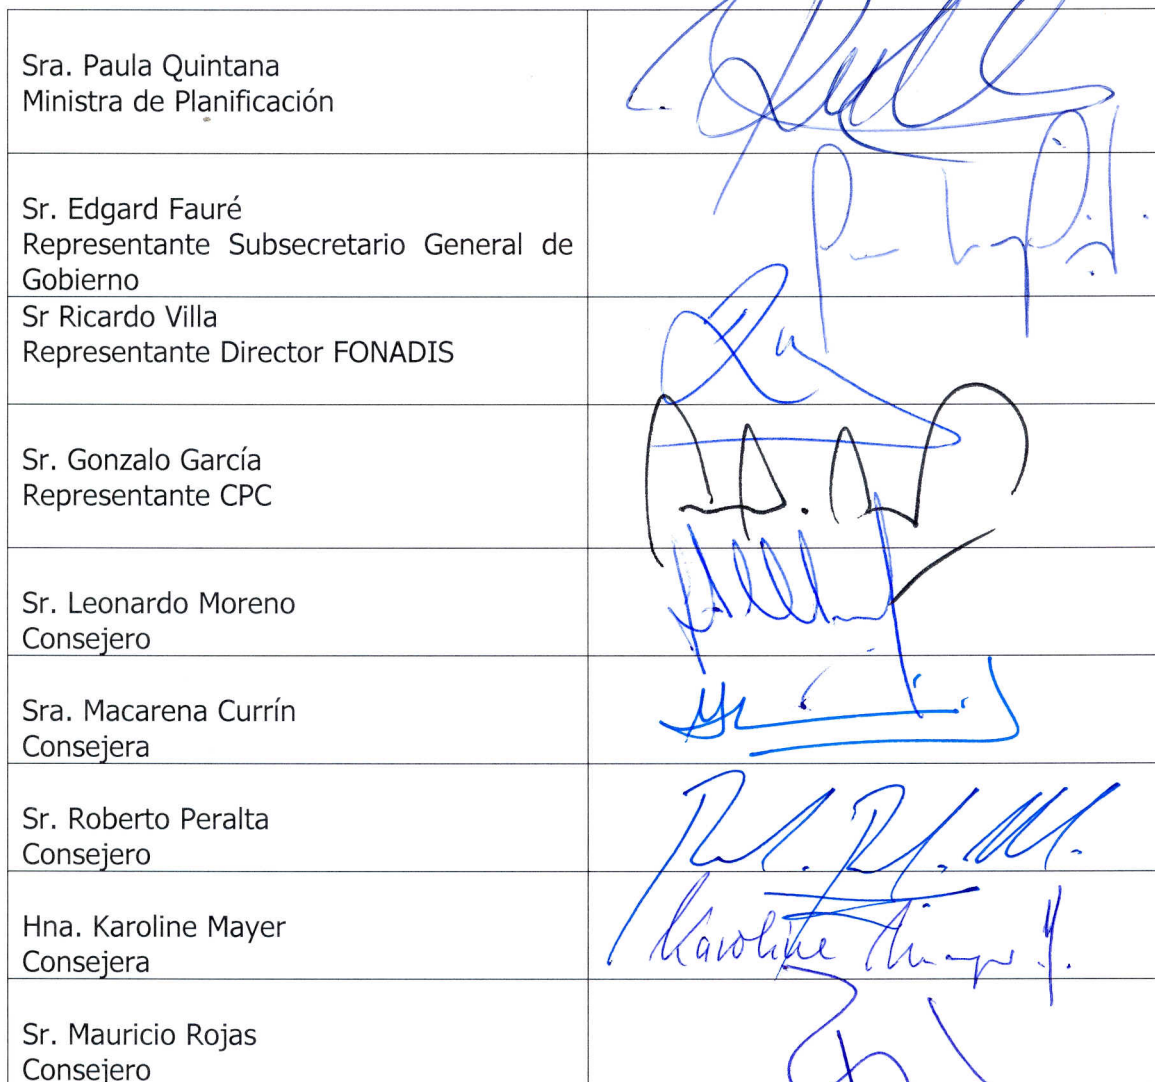 Sra. Paula Quintana
Ministra de Planificación
Sr. Edgard Fauré
Representante Subsecretario General de
Gobierno
Sr Ricardo Villa
Representante Director FONADIS
Sr. Gonzalo García
Representante CPC
Sr. Leonardo Moreno
Consejero
Sra. Macarena Currín
Consejera
Sr. Roberto Peralta
Consejero
Hna. Karoline Mayer
Consejera
Karoline
Sr. Mauricio Rojas
Consejero